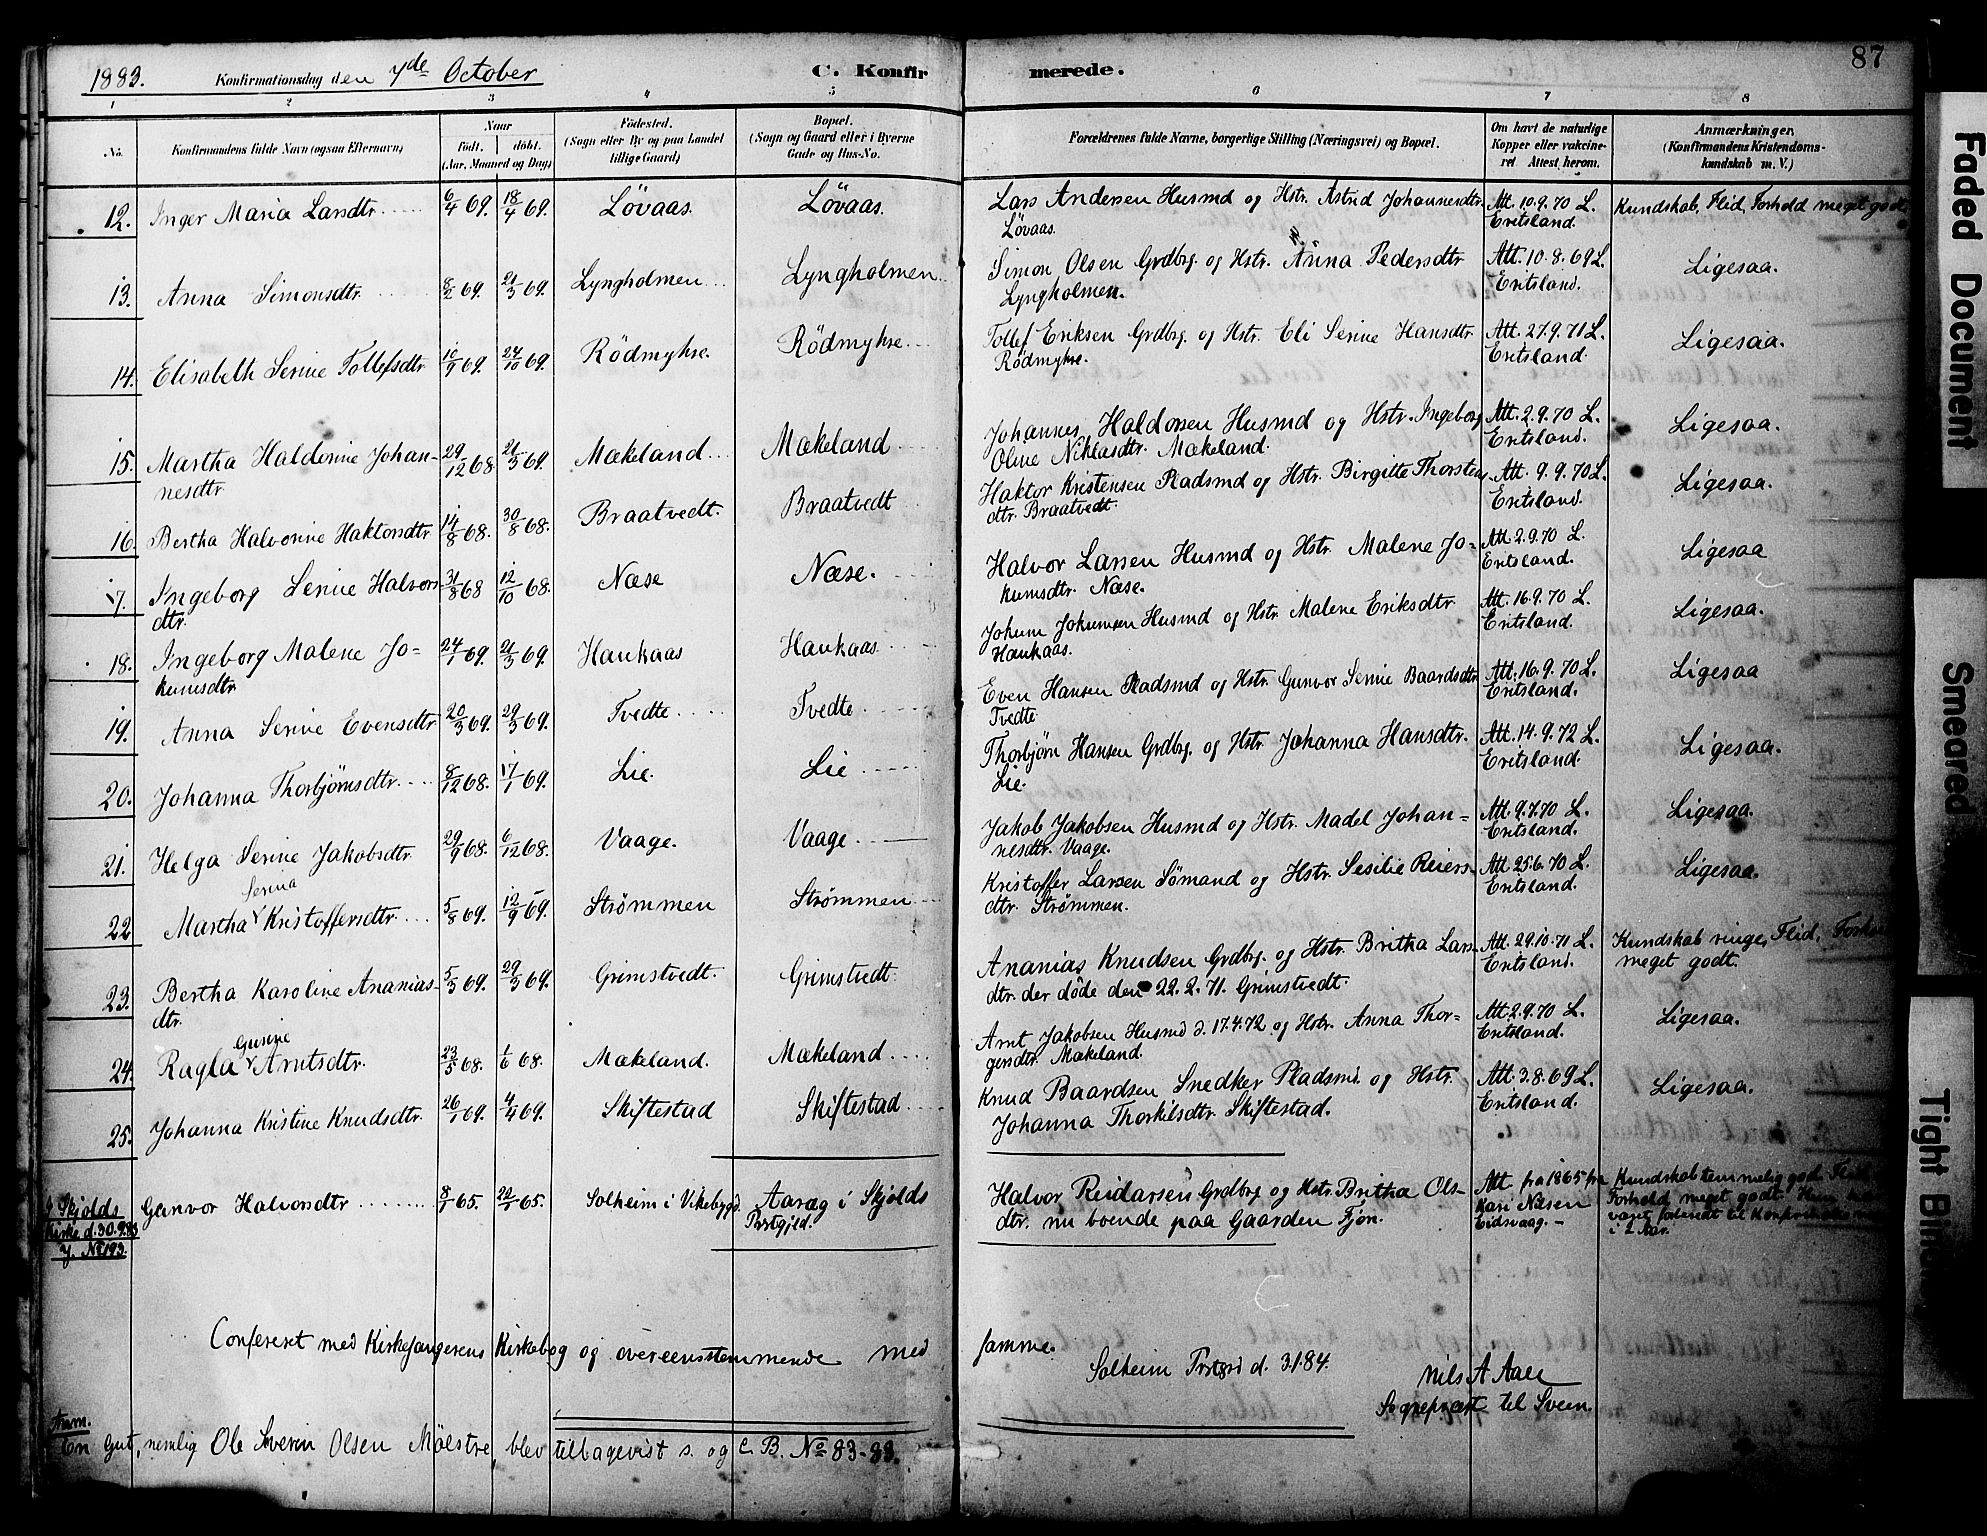 87
1883. Konfirmationsdag den 7de October C. Konfirmerede.
1 2 3 4 5 6 7 8
No. Konfirmandens fulde Navn (ogsaa Efternavn) Naar født. døbt. (Aar, Maaned og Dag) Fødested. (Sogn eller By og paa Landet tillige Gaard) Bopæl. (Sogn og Gaard eller i Byerne Gade og Hus-No. Forældrenes fulde Navne, borgerlige Stilling (Næringsvei) og Bopæl. Om havt de naturlige Kopper eller vaccineret Attest herom. Anmærkninger. (Konfirmandens Kristendomskundskab m. V.)
12. Inger Maria Larsdtr. 6/4 69. 18/4 69. Lövaas. Lövaas. Lars Andersen Husmd og Hstr. Astrid Johannesdtr. Att. 10.9.70 L. Kundskab, Flid, Forhold meget godt
Lövaas. Eritsland.
13. Anna Simonsdtr. 8/2 69. 21/3 69. Lyngholmen Lyngholmen Simon Olsen Grdbrg. og Hstr. Anna Pedersdtr Att. 10.8.69 L. Ligesaa.
Lyngholmen. Eritsland.
14. Elisabeth Serine Tollefsdtr 10/9 69. 24/10 69. Rödmykre. Rödmykre. Tollef Eriksen Grdbrg. og Hstr. Eli Serine Hansdtr. Att. 27.9.71 L. Ligesaa.
Rödmykre. Eritsland.
15. Martha Haldorine Johan- 29/12 68. 21/3 69. Mækeland Mækeland Johannes Haldorsen Husmd og Hstr. Ingeborg Att. 2.9.70 L. Ligesaa.
nesdtr Oline Niklasdtr. Mækeland. Eritsland.
16. Bertha Halvorine Haktorsdtr 14/8 68. 30/8 68. Braatvedt. Braatvedt Haktor Kristensen Pladsmd og Hstr. Birgitte Thorstens- Att. 9.9.70 L. Ligesaa.
dtr. Braatvedt. Eritsland.
17. Ingeborg Serine Halvors- 31/8 68 12/10 68. Næse Næse. Halvor Larsen Husmd og Hstr. Malene Jo- Att. 2.9.70 L. Ligesaa
dtr. kumsdtr. Næse. Eritsland.
18. Ingeborg Malene Jo- 24/1 69. 21/3 69. Haukaas Haukaas Johum Jokumsen Husmd og Hstr. Malene Eriksdtr. Att. 16.9.70 L. Ligesaa.
kumsdtr. Haukaas. Eritsland.
19. Anna Serine Evensdtr 20/3 69. 29/3 69. Tvedte Tvedte Even Hansen Pladsmd og Hstr. Gunvor Serine Baardsdtr Att. 16.9.70 L. Ligesaa
Tvedte. Eritsland.
20. Johanna Thorbjørnsdtr. 8/12 68. 17/1 69. Lie. Lie Thorbjørn Hansen Grdbrg. og Hstr. Johanna Hansdtr. Att. 14.9.72 L. Ligesaa.
Lie. Eritsland.
21. Helga Serine Jakobsdtr 29/9 68. 6/12 68. Vaage. Vaage. Jakob Jakobsen Husmd og Hstr. Madel Johan- Att. 9.7.70 L. Ligesaa.
nesdtr. Vaage. Eritsland.
22 Martha Serina Kristoffersdtr. 5/8 69. 12/9 69. Strømmen Strømmen Kristoffer Larsen Sömand og Hstr. Sesilie Reiers- Att. 25.6.70 L. Ligesaa.
dtr. Strømmen. Eritsland.
23. Bertha Karoline Ananias- 5/3 69. 29/3 69. Grimstvedt. Grimstvedt Ananias Knudsen Grdbrg. og Hstr. Britha Lars- Att. 29.10.71 L. Kundskab ringe, Flid,
dtr. dtr. der døde den 22.2.71. Grimstvedt. Eritsland. meget godt.
24. Ragla Gurine Arntsdtr. 23/5 68. 1/6 68. Mækeland. Mækeland Arnt Jakobsen Husmd d. 17.4.72 og Hstr. Anna Thor- Att. 2.9.70 L. Ligesaa.
gersdtr. Mækeland. Eritsland.
25. Johanna Kristine Knudsdtr. 26/1 69. 4/4 69. Skiftestad Skiftestad Knud Baardsen Snedker Pladsmd. og Hstr. Att. 3.8.69 L. Ligesaa.
Johanna Thorkilsdtr. Skiftestad. Eritsland.
I Skjolds Gunvor Halvorsdtr 8/1 65. 22/1 65. Solheim i Vikebygd. Aarag i Skjolds Halvor Reidarsen Grdbrg og Hstr. Britha Ols- Att fra 1865 fra Kundskab temmelig god
Kirke d. 30.9.83 Prstgjed. dtr. nu boende paa Gaarden Fjon. Kari Nilsen Forhold meget godt.
J. No 193. Eidsvaag. i 2 Aar.
Confereret med Kirkesangerens Kirkebog og overeensstemmende med samme.
Solheim Prstgrd d. 3.1.84. Nils A Aall
Sogneprest til Sveen.
Anm.
En Gut, nemlig Ole Severin Olsen Mölstre, blev tilbagevist s. og C. B. No 83-83.
Faded Document
Smeared
Tight Bin